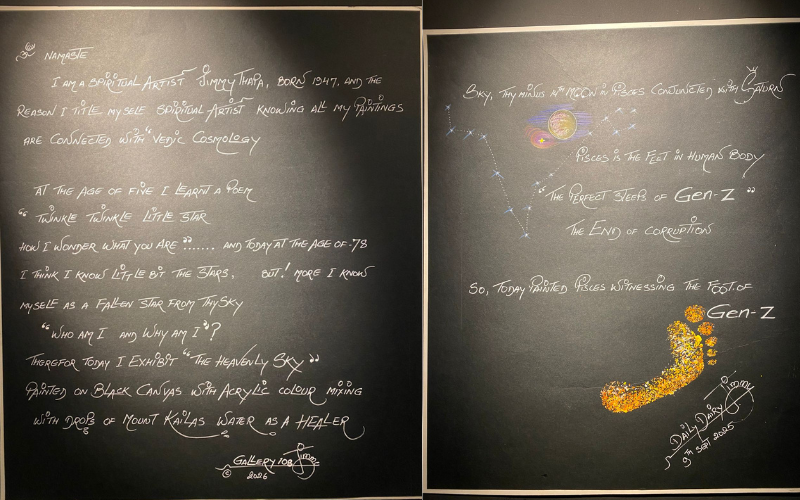 NAMASTE
I AM A SPIRITUAL ARTIST JIMMY THAPA, BORN 1947, AND THE
REASON I TITLE MYSELF SPIRITUAL ARTIST KNOWING ALL MY PAINTINGS
ARE CONNECTED WITH "VEDIC COSMOLOGY
AT THE AGE OF FIVE I LEARNT A POEM
"TWINKLE TWINKLE LITTLE STAR
HOW I WONDER WHAT YOU ARE"....... AND TODAY AT THE AGE OF -78
I THINK I KNOW LITTLE BIT THE STARS. BUT! MORE I KNOW
MYSELF AS A FALLEN STAR FROM THY SKY
"WHO AM I AND WHY AM I"?
THEREFOR TODAY I EXHIBIT "THE HEAVENLY SKY"
PAINTED ON BLACK CANVAS WITH ACRYLIC COLOUR MIXING
WITH DROPS OF MOUNT KAILAS WATER AS A HEALER
GALLERY 108 Jimmy
© 2026
SKY, THY MINUS MOON IN PISCES CONJUNCTED WITH SATURN
PISCES IS THE FEET IN HUMAN BODY
"THE PERFECT STEEPS OF Gen-Z"
THE END OF CORRUPTION
SO, TODAY PAINTED PISCES WITNESSING THE FOOT OF
Gen-Z
DAILY DAIRY Jimmy
9TH SEPT 2025